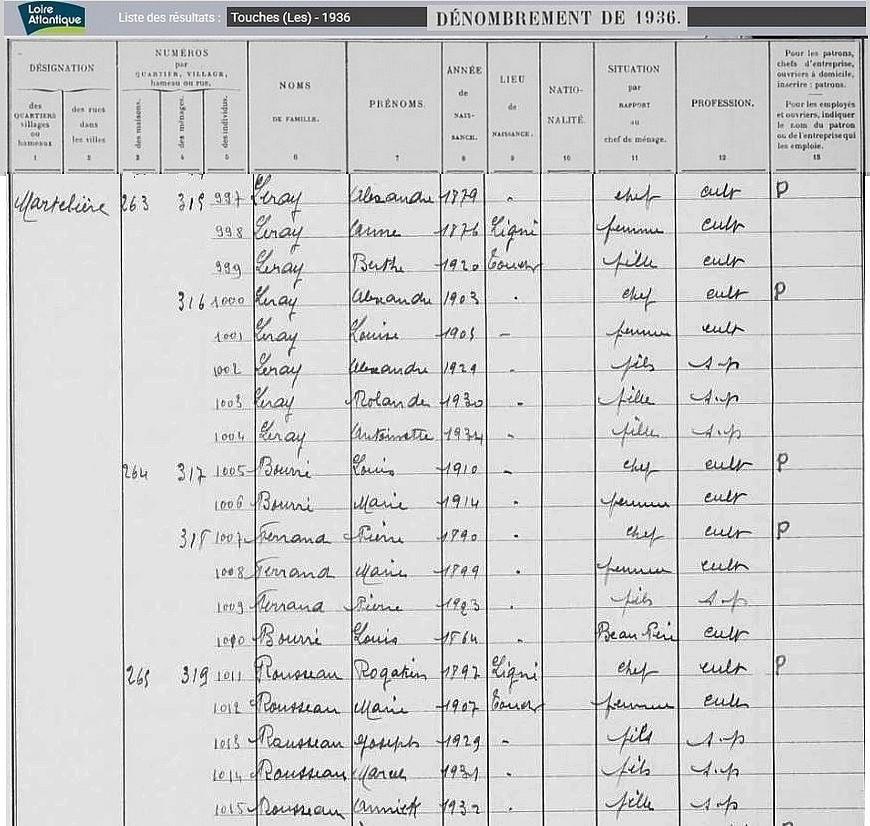 Loire Atlantique Liste des résultats : Touches (Les) - 1936 DÉNOMBREMENT DE 1936.
DÉSIGNATION NUMÉROS par QUARTIER, VILLAGE, hameau ou rue. NOMS DE FAMILLE. PRÉNOMS. ANNÉE de NAISSANCE. LIEU de NAISSANCE. NATIONALITÉ. SITUATION par RAPPORT au chef de ménage. PROFESSION. Pour les patrons, chefs d'entreprise, ouvriers à domicile, inscrire : patrons.
des QUARTIERS villages ou hameaux des rues dans les villes des maisons. des ménages. des individus. Pour les employés et ouvriers, indiquer le nom du patron ou de l'entreprise qui les emploie.
1 2 3 4 5 6 7 8 9 10 11 12 13
Martelière 263 315 997 Leray Alexandre 1879 - chef cult P
998 Leray Anne 1876 Ligné femme cult
999 Leray Berthe 1920 Touches fille cult
316 1000 Leray Alexandre 1903 - chef cult P
1001 Leray Louise 1905 - femme cult
1002 Leray Alexandre 1929 - fils s.p
1003 Leray Rolande 1930 - fille s.p
1004 Leray Antoinette 1934 - fille s.p
264 317 1005 Bourré Louis 1910 - chef cult P
1006 Bourré Marie 1914 - femme cult
318 1007 Ferrand Pierre 1890 - chef cult P
1008 Ferrand Marie 1899 - femme cult
1009 Ferrand Pierre 1923 - fils s.p
1010 Bourré Louis 1864 - Beau Père cult
265 319 1011 Rousseau Rogatien 1897 Ligné chef cult P
1012 Rousseau Marie 1907 Touches femme cult
1013 Rousseau Joseph 1929 - fils s.p
1014 Rousseau Marcel 1931 - fils s.p
1015 Rousseau Annick 1932 - fille s.p